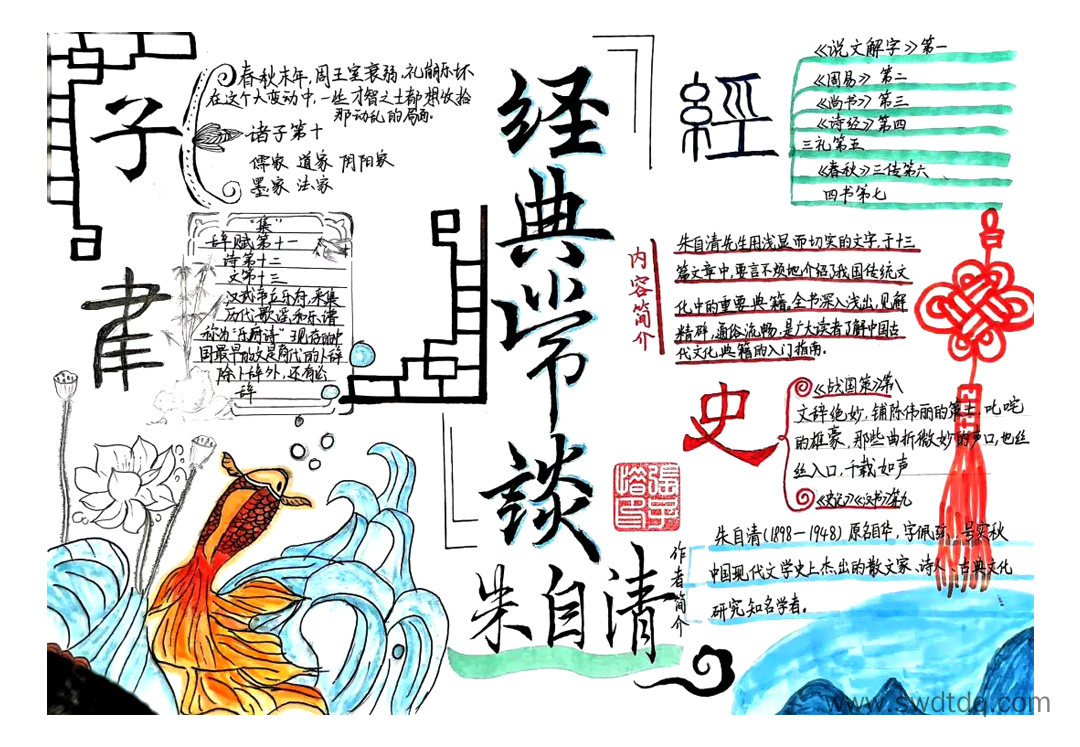 经典常談
朱自清
子
春秋末年,周王室衰弱,礼崩乐坏
在这个大变动中,一些才智之士都想收拾
那动乱的局面。
诸子第十
儒家 道家 阴阳家
墨家 法家
"集"
辞赋第十一
诗第十二
文第十三
汉武帝立乐府,采集
历代歌谣和乐谱
称为"乐府诗"现存的中
国最早的文是商代的卜辞
除卜辞外,还有公
辞
經
《说文解字》第一
《周易》第二
《尚书》第三
《诗经》第四
三礼第五
《春秋》三传第六
四书第七
内容简介
朱自清先生用浅显而切实的文字,于十三
篇文章中,要言不烦地介绍了我国传统文
化中的重要典籍。全书深入浅出,见解
精辟,通俗流畅,是广大读者了解中国古
代文化典籍的入门指南。
史
《战国策》第八
文辞绝妙,铺陈伟丽的策士,叱咤
的雄豪,那些曲折微妙的声口,也丝
丝入口,千载如声
《史记》《汉书》第九
作者简介
朱自清(1898—1948)原名自华,字佩弦,号实秋
中国现代文学史上杰出的散文家、诗人、古典文化
研究知名学者。
www.swdtdq.com